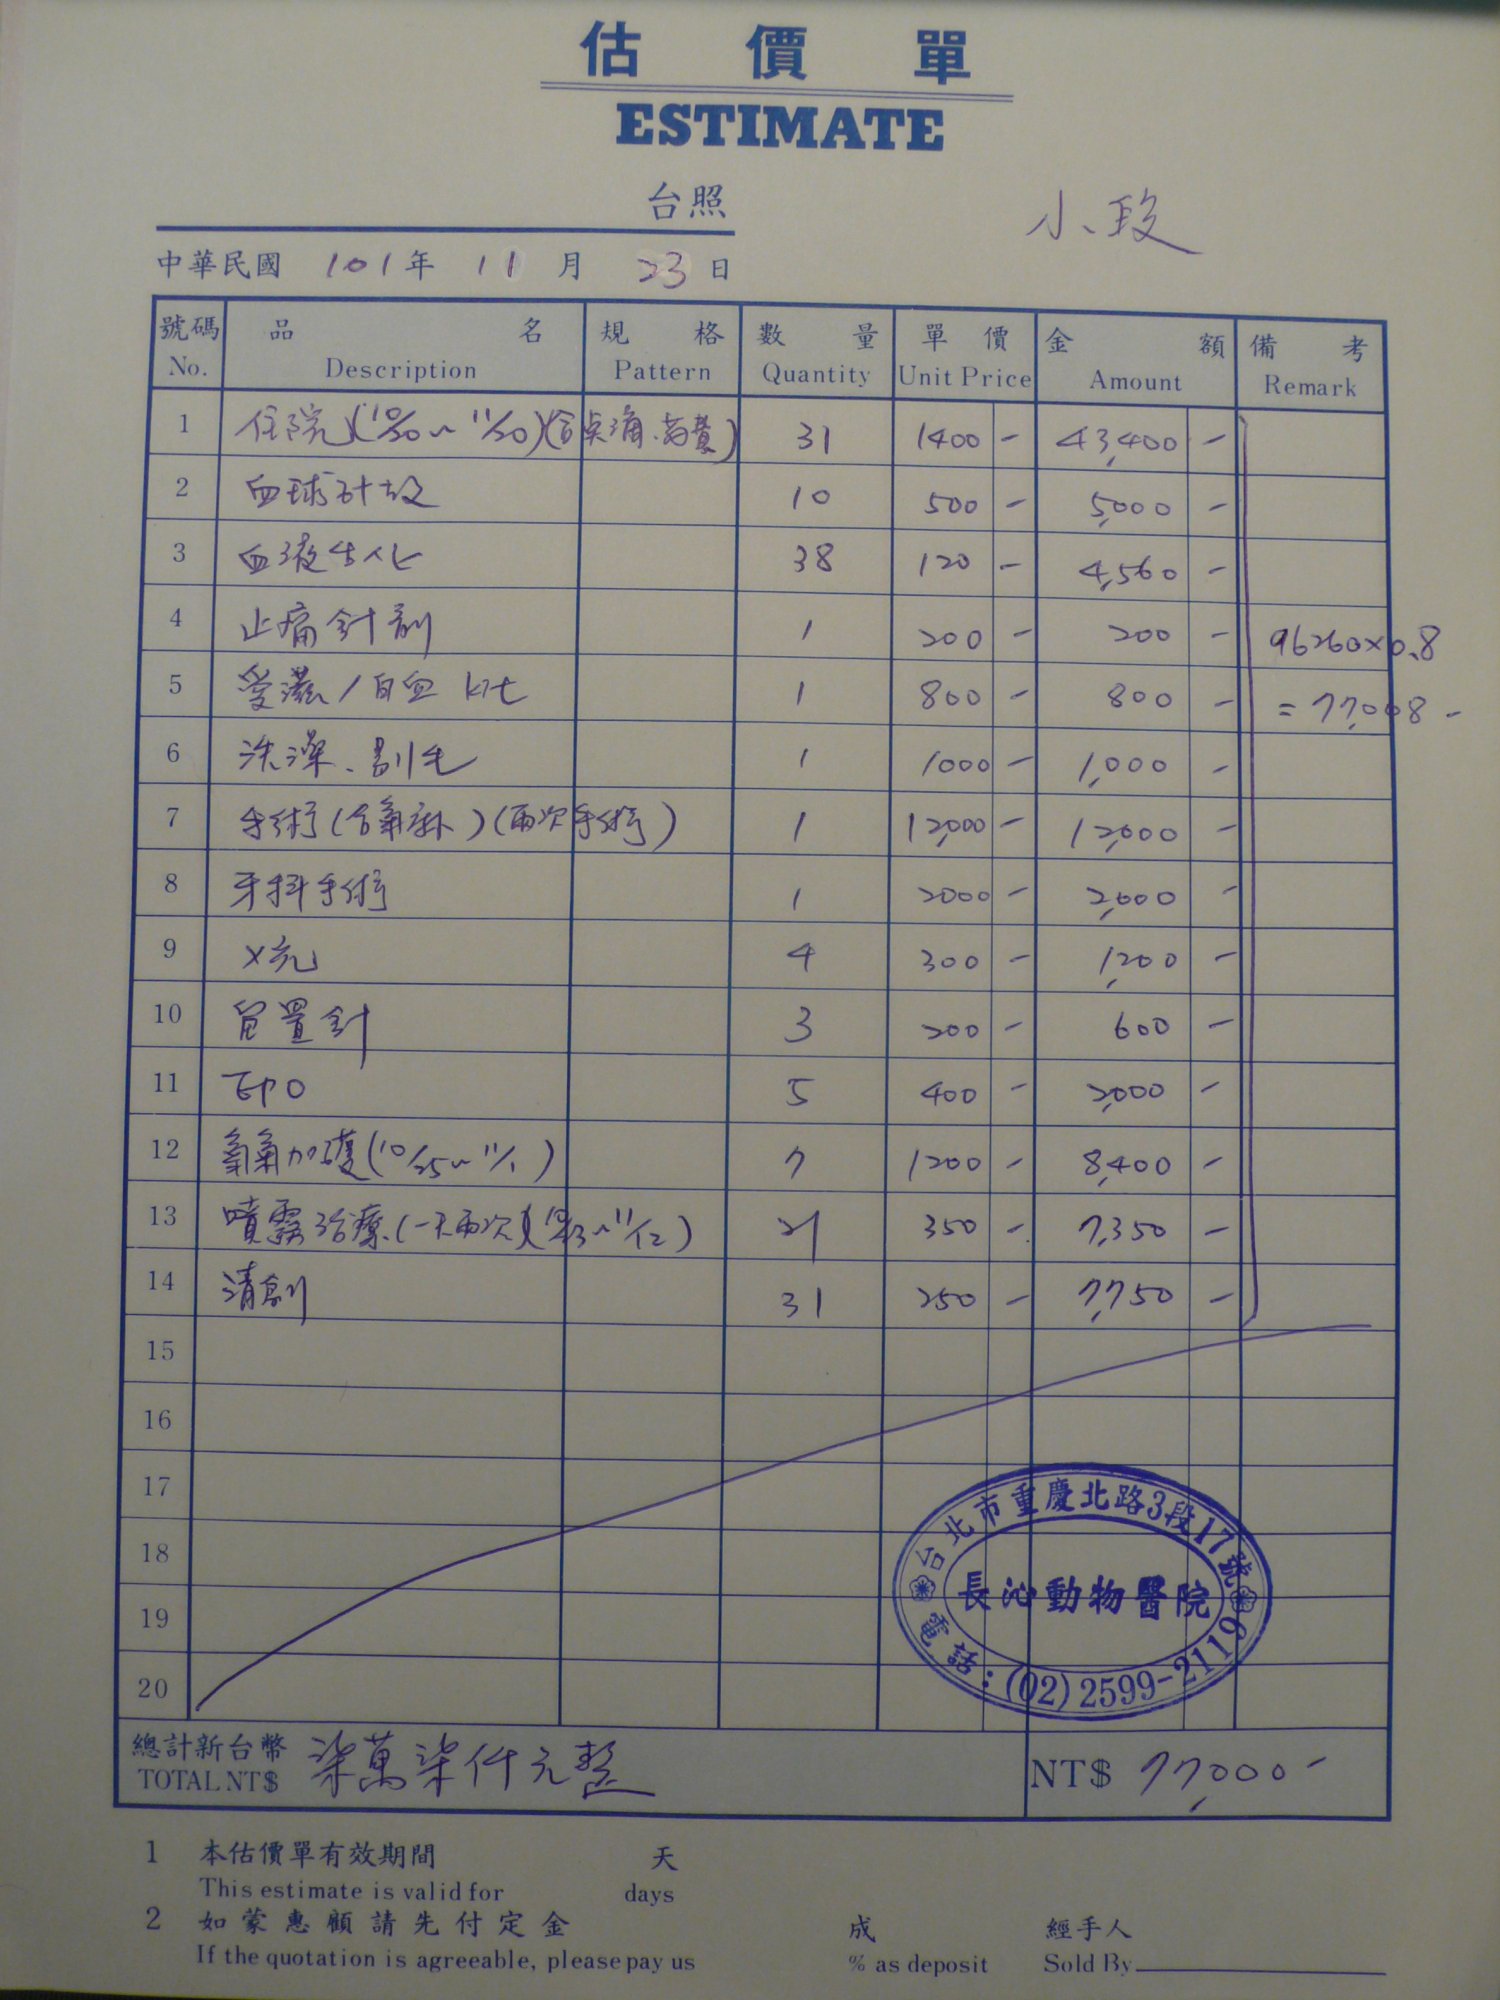 估價單
ESTIMATE
台照 小玫
中華民國 101年 11月 23日
號碼 品名 規格 數量 單價 金額 備考
No. Description Pattern Quantity Unit Price Amount Remark
1 住院(10/20~11/20)(含點滴、葯費) 31 1400 - 43,400 -
2 血球計數 10 500 - 5,000 -
3 血液生化 38 120 - 4,560 -
4 止痛針劑 1 200 - 200 - 96260×0.8
5 愛滋/白血 kit 1 800 - 800 - =77,008-
6 洗澡、剃毛 1 1000 - 1,000 -
7 手術(含氣麻)(兩次手術) 1 12,000 - 12,000 -
8 牙科手術 1 2000 - 2,000 -
9 X光 4 300 - 1,200 -
10 留置針 3 200 - 600 -
11 EPO 5 400 - 2,000 -
12 氧氣加護(10/25~11/1) 7 1200 - 8,400 -
13 噴霧治療(一天兩次) 21 350 - 7,350 -
14 清創 31 250 - 7,750 -
15
16
17
18
19
20
台北市重慶北路3段17號
長沁動物醫院
電話:(02)2599-2119
總計新台幣 柒萬柒仟元整 NT$ 77,000-
TOTAL NT$
1 本估價單有效期間 天
This estimate is valid for days
2 如蒙惠顧請先付定金 成 經手人
If the quotation is agreeable, please pay us % as deposit Sold By